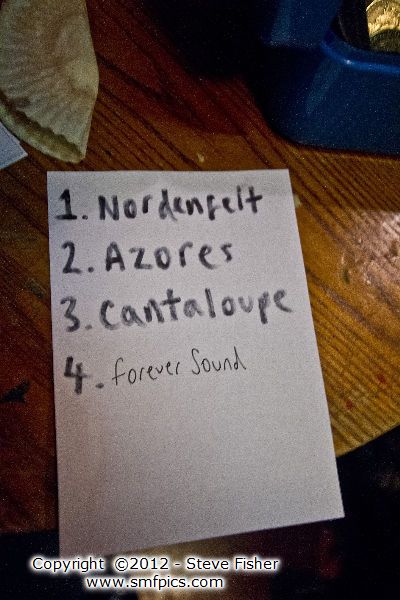 1. Nordenfelt
2. Azores
3. Cantaloupe
4. forever Sound
Copyright ©2012 - Steve Fisher
www.smfpics.com